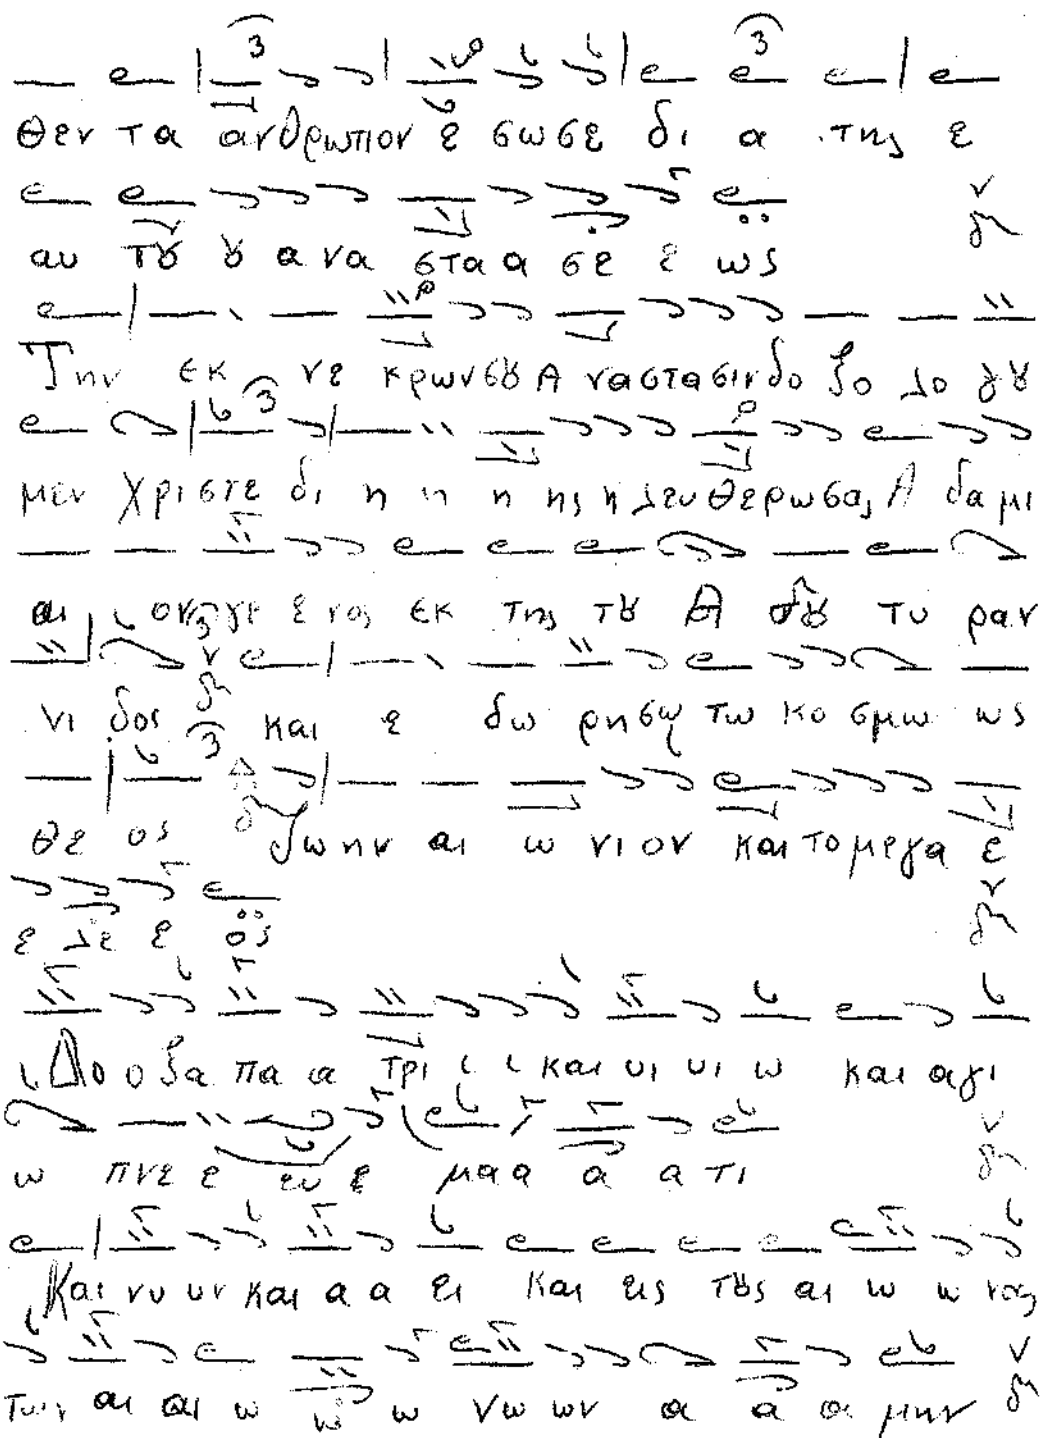 θεν τα ανθρωπιον ε σωσε δι α της ε
αυ τȣ ȣ α να στα α σε ε ως
Την εκ νε κρων σȣ Α ναστασιν δο ξο λο γȣ
μεν Χρι στε δι η η η ης η λευθερωσας Α δαμι
αι ον γε ε νος εκ της τȣ Α δȣ τυ ραν
νι δος και ε δω ρησω τω κο σμω ως
θε ος ζωην αι ω νιον και το μεγα ε
ε λε ε ος
Δο ο ξα πα α τρι ι ι και υι υι ω και αγι
ω πνε ε ευ ε μα α α α τι
Και νυ υν και α α ει και εις τȣς αι ω ω νας
των αι αι ω ω ω νω ων α α α μην